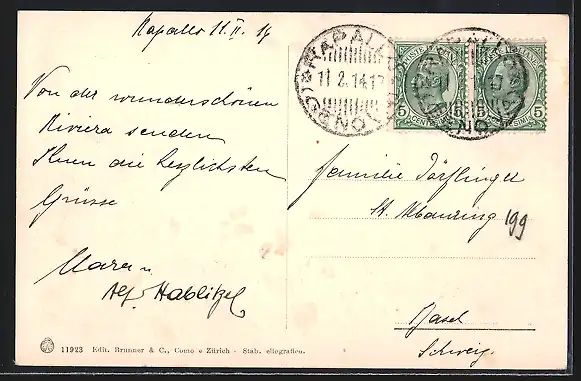 Rapallo 11. II. 14
Von der wunderschönen
Riviera senden
Ihnen die herzlichsten
Grüsse
Mara u.
Alf. Hablitzel
RAPALLO
11 2.14 17
(GENOVA)
POSTE ITALIANE
5 CENTESIMI 5
familie Dörflinger
St.
199
Basel
Schweiz.
11923 Edit. Brunner & C., Como e Zürich - Stab. eliografico.